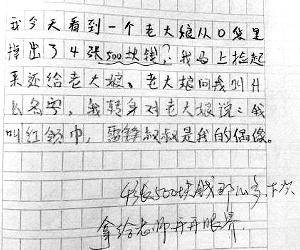 我今天看到一个老大娘从口袋里
掉出了4张500块钱?我马上捡起
来还给老大娘、老大娘问我叫什
么名字,我转身对老大娘说:我
叫红领巾,雷锋叔叔是我的偶像。
4张500块钱那么多,下次
拿给老师开开眼界.